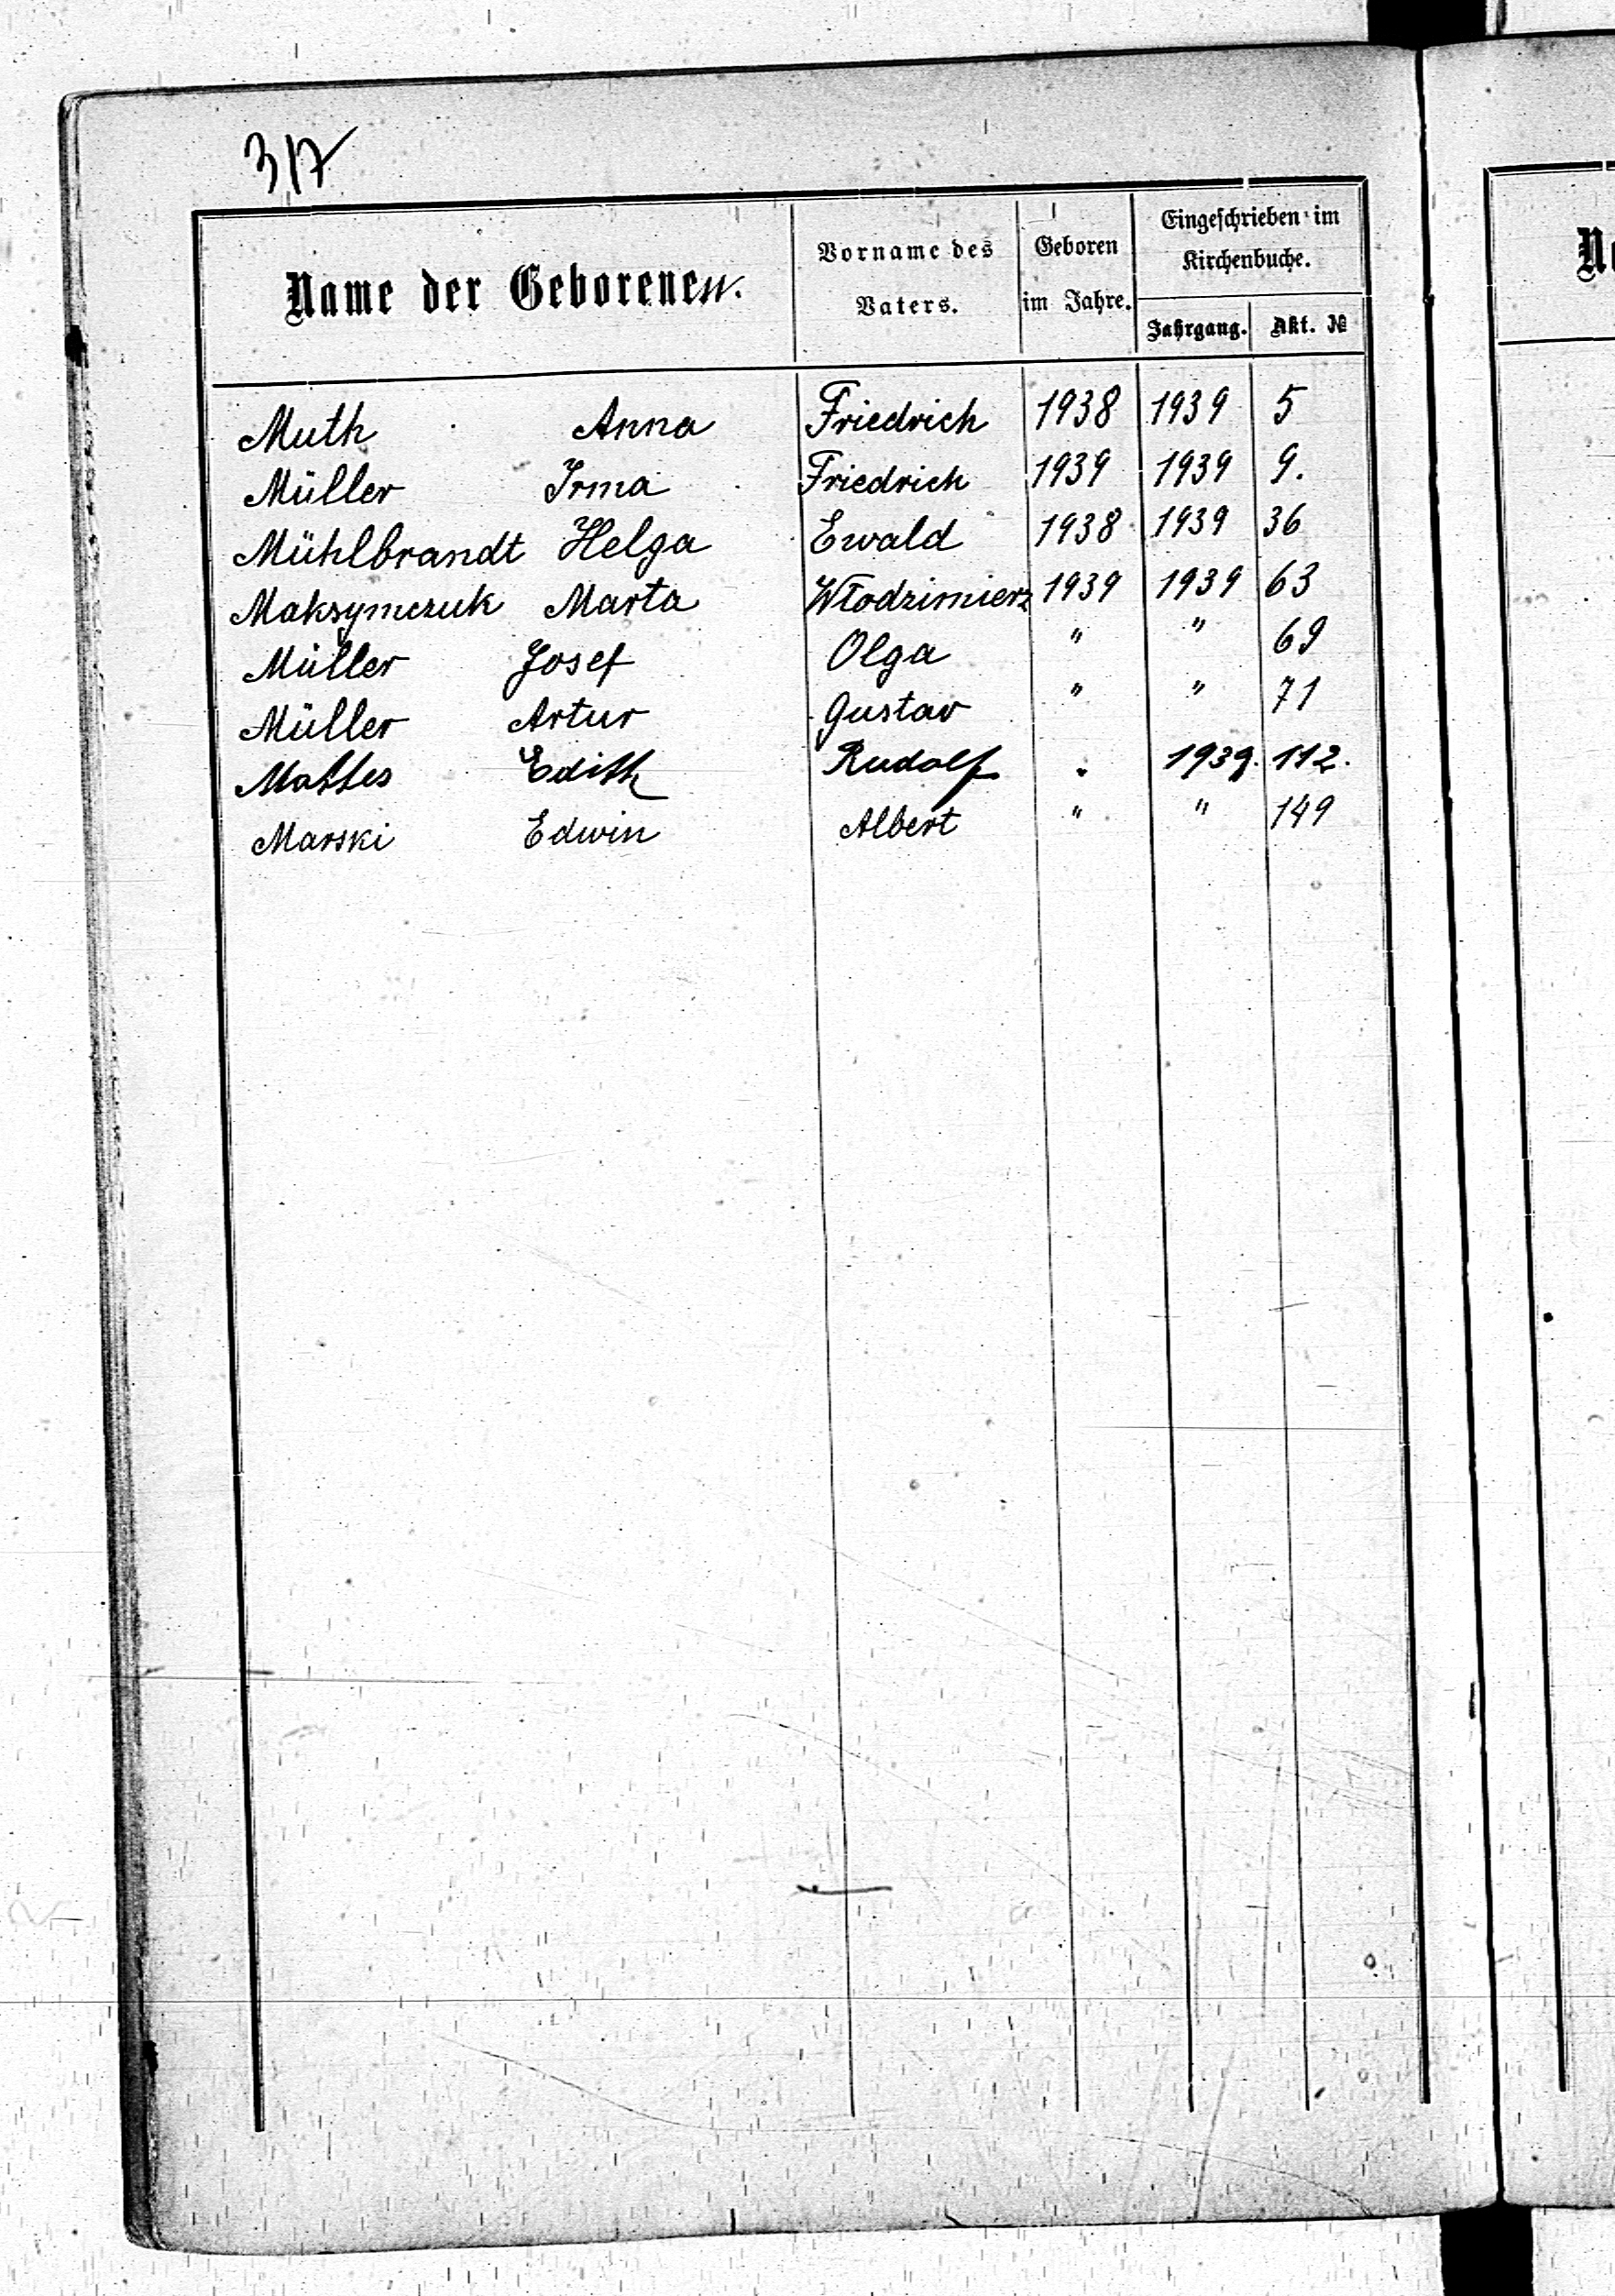 317
Name der Geborenen.
Vorname des Vaters.
Geboren im Jahre.
Eingeschrieben im Kirchenbuche.
Jahrgang.
Akt. №
Muth Anna Friedrich 1938 1939 5
Müller Irma Friedrich 1939 1939 9.
Mühlbrandt Helga Ewald 1938 1939 36
Maksymczuk Marta Włodzimierz 1939 1939 63
Müller Josef Olga " " 69
Müller Artur Gustav " " 71
Mattes Edith Rudolf " 1939. 112.
Marski Edwin Albert " " 149